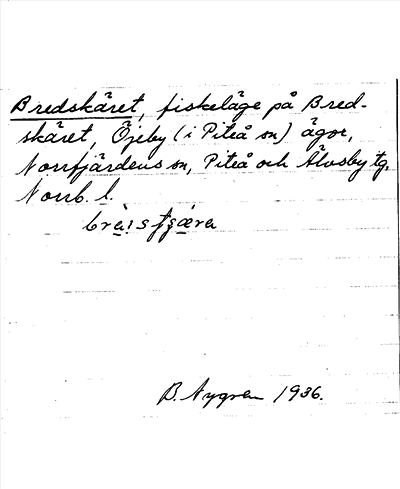 Bredskäret, fiskeläge på Bred-
skäret, Öjeby (i Piteå sn) ägor,
Norrfjärdens sn, Piteå och Älvsby tg,
Norrb. l.
B. Nygren 1936.